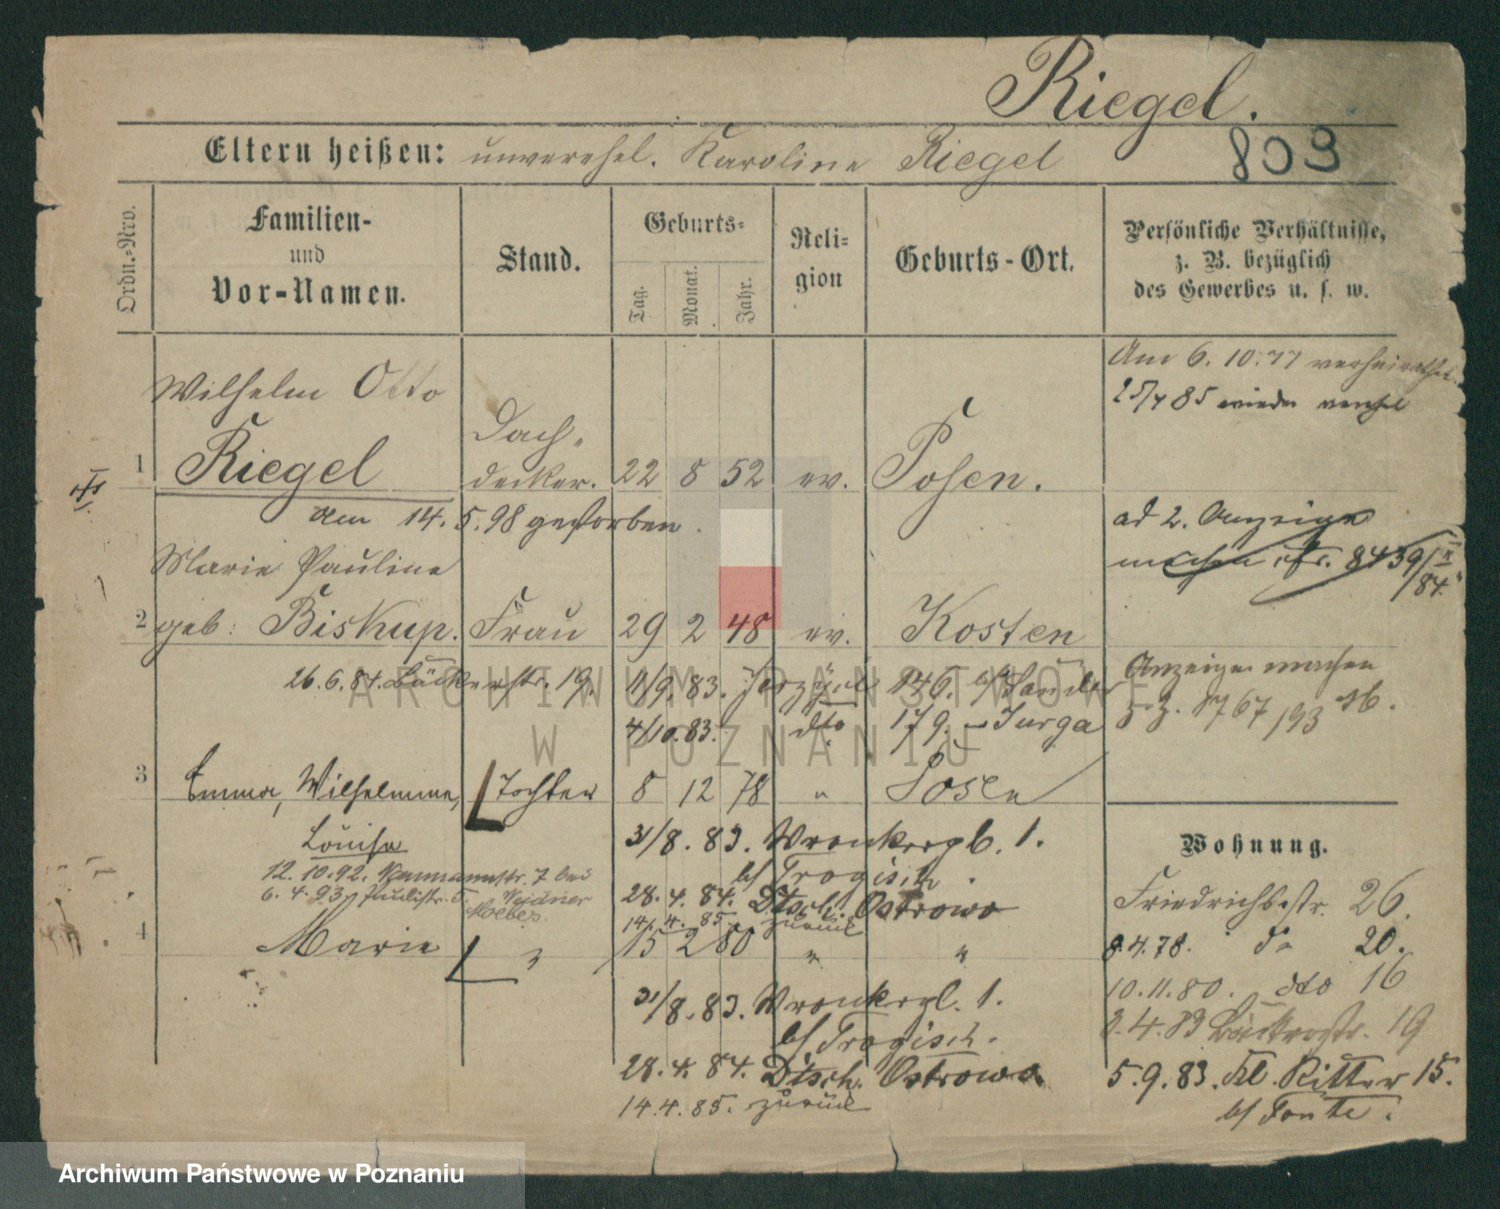 Riegel.
803
Eltern heißen: unverehel. Karoline Riegel
Ordn.-Nro.
Familien- und Vor-Namen.
Stand.
Geburts-
Tag. Monat. Jahr.
Reli- gion
Geburts-Ort.
Persönliche Verhältnisse, z. B. bezüglich des Gewerbes u. s. w.
Wilhelm Otto
Am 6. 10. 77 verheirathet
85 wieder verehel
1 Riegel Dach- decker. 22 8 52 ev. Posen.
am 14. 5. 98 gestorben.
ad 2. Anzeige
machen cfr. 8439/
/84.
Marie Pauline
2 geb: Biskup. Frau 29 2 48 ev. Kosten
26. 6. 84. Bäckerstr. 19. 11/9. 83. 146. b/
4/10. 83. dto 179. - Jurga
Anzeige machen
z. 8767/93
3 Emma, Wilhelmine, Tochter 8 12 78 " Posen
Louise
31/8. 83. Wronkergb. 1.
b/ Trogisch.
12. 10. 92. 7 bei
6. 4. 93. Paulistr. 5.
28. 4. 84. Dtsch. Ostrowo
14. 4. 85. zurück
4 Marie " 15 2 80 " "
31/8. 83. Wronkergb. 1.
b/ Trogisch.
28. 4. 84. Dtsch. Ostrowo.
14. 4. 85. zurück
Wohnung.
Friedrichsstr. 26.
8. 4. 78. do 20.
10. 11. 80. dto 16
3. 4. 83 Bäckerstr. 19
5. 9. 83. Kl. Ritter 15.
b/ Fonte.
ARCHIWUM PAŃSTWOWE
W POZNANIU
Archiwum Państwowe w Poznaniu